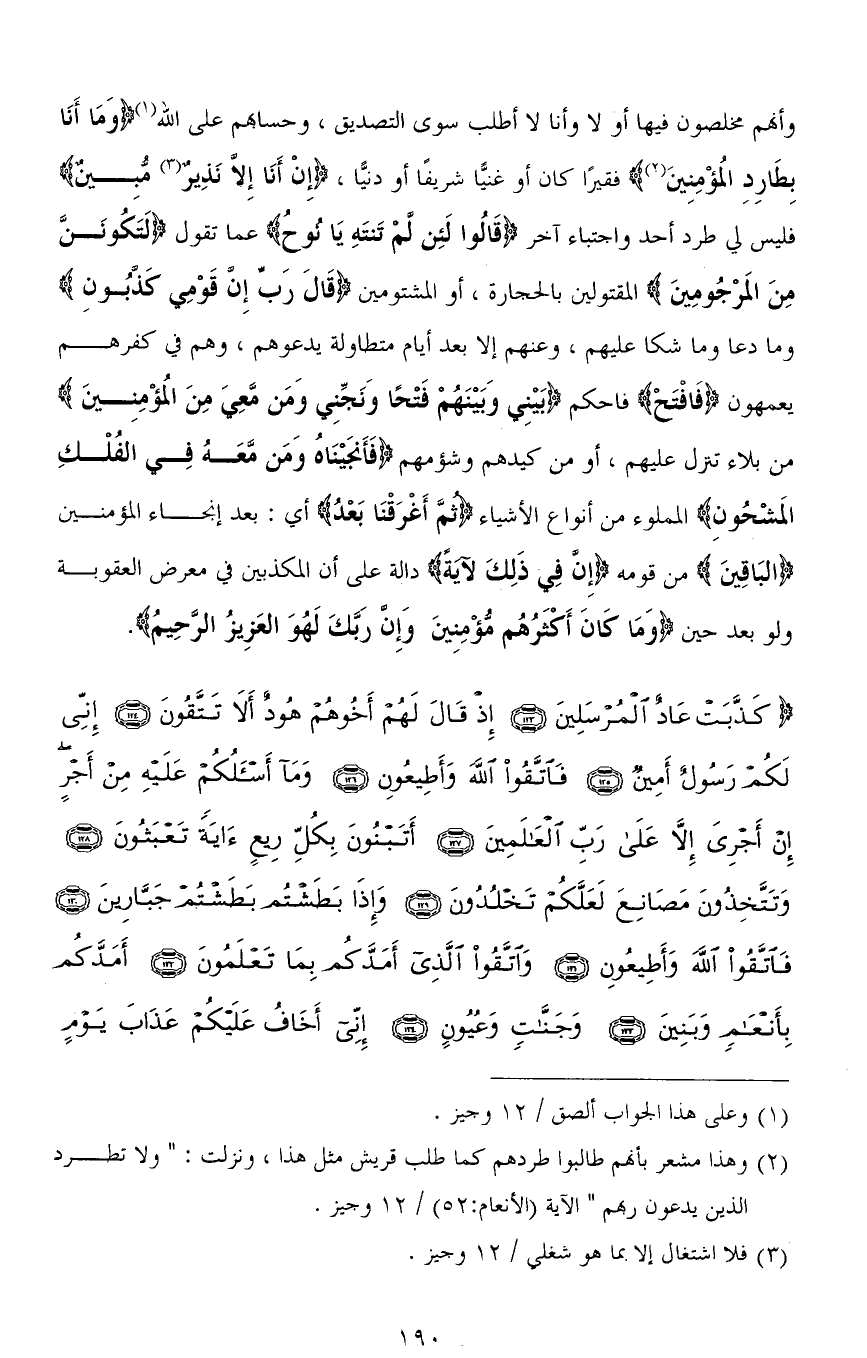 وأنهم مخلصون فيها أو لا وأنا لا أطلب سوى التصديق ، وحسابهم على الله(١)﴿وَمَا أَنَا
بِطَارِدِ الْمُؤْمِنِينَ(٢)﴾ فقيرًا كان أو غنيًّا شريفًا أو دنيًّا ، ﴿إِنْ أَنَا إِلاَّ نَذِيرٌ(٣) مُّبِـــينٌ﴾
فليس لي طرد أحد واجتباء آخر ﴿قَالُوا لَئِن لَّمْ تَنتَهِ يَا نُوحُ﴾ عما تقول ﴿لَتَكُونَـــنَّ
مِنَ الْمَرْجُومِينَ﴾ المقتولين بالحجارة ، أو المشتومين ﴿قَالَ رَبِّ إِنَّ قَوْمِي كَذَّبُونِ﴾
وما دعا وما شكا عليهم ، وعنهم إلا بعد أيام متطاولة يدعوهم ، وهم في كفرهـــم
يعمهون ﴿فَافْتَحْ﴾ فاحكم ﴿بَيْنِي وَبَيْنَهُمْ فَتْحًا وَنَجِّنِي وَمَن مَّعِيَ مِنَ الْمُؤْمِنِـــينَ﴾
من بلاء تنزل عليهم ، أو من كيدهم وشؤمهم ﴿فَأَنجَيْنَاهُ وَمَن مَّعَـــهُ فِـــي الفُلْـــكِ
الْمَشْحُونِ﴾ المملوء من أنواع الأشياء ﴿ثُمَّ أَغْرَقْنَا بَعْدُ﴾ أي : بعد إنجـــاء المؤمنـــين
﴿البَاقِينَ﴾ من قومه ﴿إِنَّ فِي ذَلِكَ لآيَةً﴾ دالة على أن المكذبين في معرض العقوبـــة
ولو بعد حين ﴿وَمَا كَانَ أَكْثَرُهُم مُّؤْمِنِينَ وَإِنَّ رَبَّكَ لَهُوَ العَزِيزُ الرَّحِيمُ﴾.
﴿ كَذَّبَتْ عَادٌ ٱلْمُرْسَلِينَ ١٢٣ إِذْ قَالَ لَهُمْ أَخُوهُمْ هُودٌ أَلَا تَتَّقُونَ ١٢٤ إِنِّى
لَكُمْ رَسُولٌ أَمِينٌ ١٢٥ فَٱتَّقُوا۟ ٱللَّهَ وَأَطِيعُونِ ١٢٦ وَمَآ أَسْـَٔلُكُمْ عَلَيْهِ مِنْ أَجْرٍ ۖ
إِنْ أَجْرِىَ إِلَّا عَلَىٰ رَبِّ ٱلْعَـٰلَمِينَ ١٢٧ أَتَبْنُونَ بِكُلِّ رِيعٍ ءَايَةً تَعْبَثُونَ ١٢٨
وَتَتَّخِذُونَ مَصَانِعَ لَعَلَّكُمْ تَخْلُدُونَ ١٢٩ وَإِذَا بَطَشْتُم بَطَشْتُمْ جَبَّارِينَ ١٣٠
فَٱتَّقُوا۟ ٱللَّهَ وَأَطِيعُونِ ١٣١ وَٱتَّقُوا۟ ٱلَّذِىٓ أَمَدَّكُم بِمَا تَعْلَمُونَ ١٣٢ أَمَدَّكُم
بِأَنْعَـٰمٍ وَبَنِينَ ١٣٣ وَجَنَّـٰتٍ وَعُيُونٍ ١٣٤ إِنِّىٓ أَخَافُ عَلَيْكُمْ عَذَابَ يَوْمٍ
(١) وعلى هذا الجواب ألصق / ١٢ وجيز .
(٢) وهذا مشعر بأنهم طالبوا طردهم كما طلب قريش مثل هذا ، ونزلت : " ولا تطـــرد
الذين يدعون ربهم " الآية (الأنعام:٥٢) / ١٢ وجيز .
(٣) فلا اشتغال إلا بما هو شغلي / ١٢ وجيز .
١٩٠